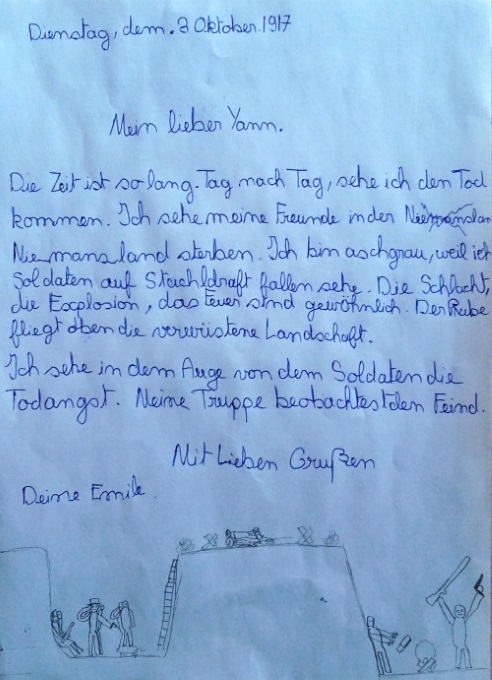 Dienstag, dem. 3 Oktober 1917
Mein lieber Yann.
Die Zeit ist so lang. Tag nach Tag, sehe ich den Tod
kommen. Ich sehe meine Freunde in der
Niemansland sterben. Ich bin aschgrau, weil ich
Soldaten auf Stachldraft fallen sehe. Die Schlacht,
die Esoplosion, das Feuer sind gewöhnlich. Der Rabe
fliegt oben die verwüstene Landschaft.
Ich sehe in dem Auge von dem Soldaten die
Todangst. Meine Truppe beobachtest den Feind.
Mit Lieben Grußen
Deine Emile.